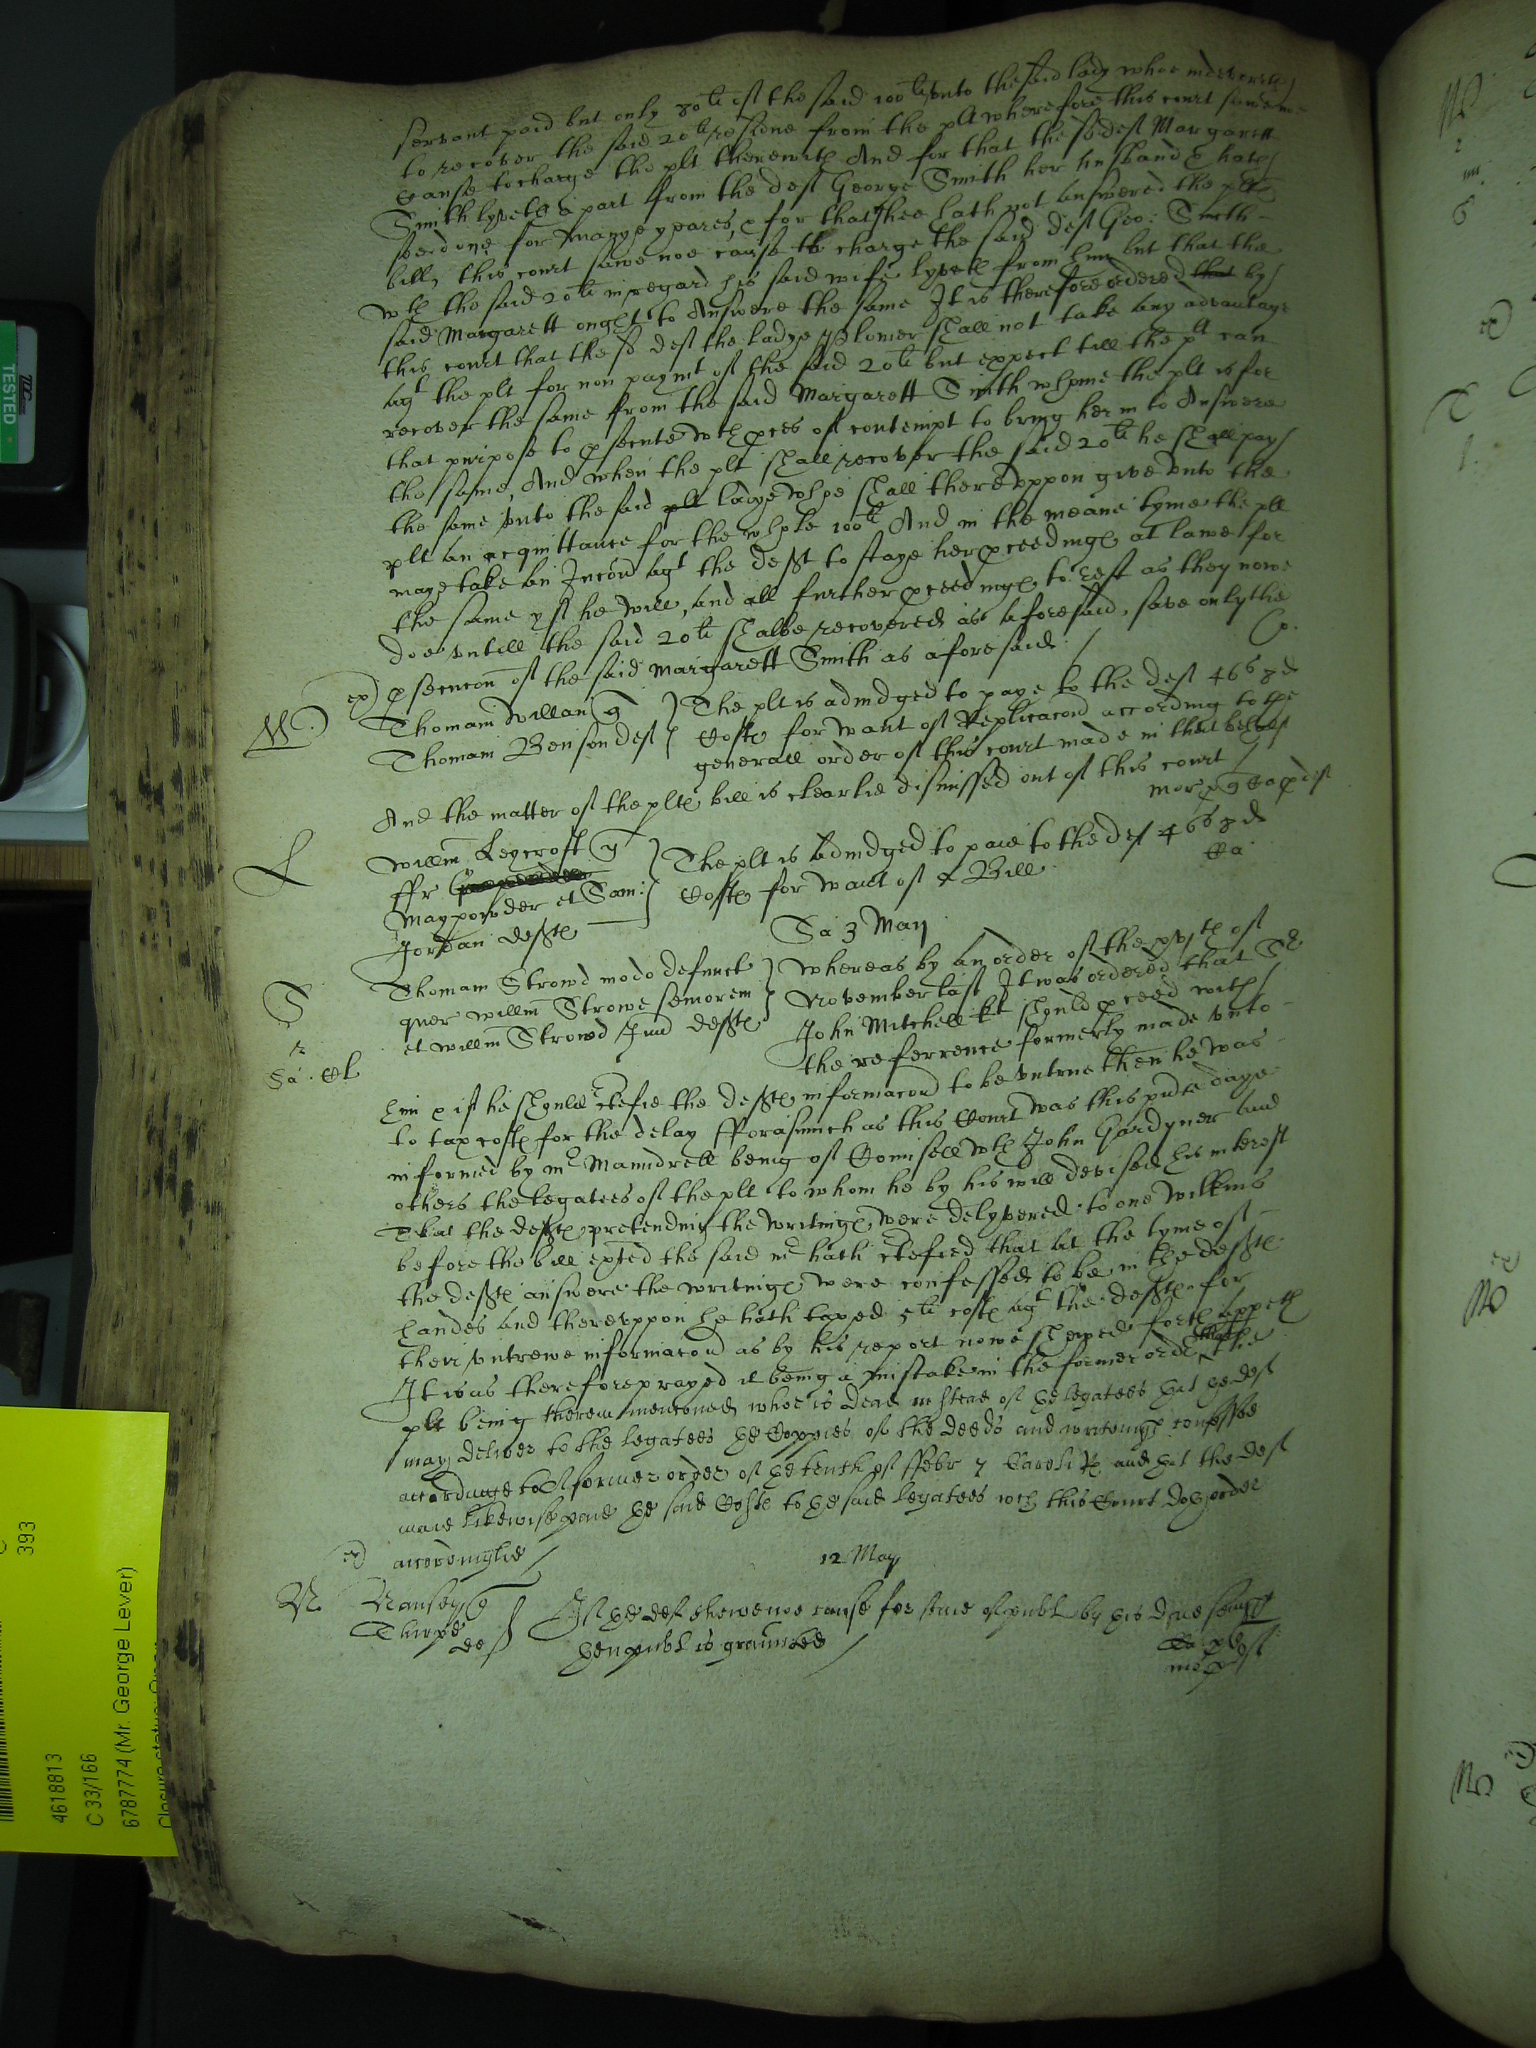 servant paid but only 80li of the said 100li unto the said lady whoe
to recover the said 20li residue from the plt wherefore this court sawe noe
cause to charge the plt therewith And for that the sd deft Margarett
Smith lyveth apart from the deft George Smith her husband & hath
soe done for manye yeares, & for that shee hath not answered the plts
bill, this court sawe noe cause to charge the said deft Geo: Smith
wth the said 20li in regard his said wife lyveth from him but that the
said Margarett ought to Answere the same It is therefore ordered that by
this court that the sd deft the ladye Plomer shall not take any advantage
agt the plt for non paymt of the said 20li but expect till the plt can
recover the same from the said Margarett Smith whome the plt is for
that purpose to psecute wth pces of contempt to bring her in to Answere
the same, And when the plt shall recover the said 20li he shall pay
the same unto the said plt ladye whoe shall thereuppon give unto the
plt an acquittance for the whole 100li And in the meane tyme the plt
maye take an Incon agt the deft to staye her pceedings at lawe for
the same yf he will, and all further pceedings to rest as they nowe
doe untill the said 20li shalbe recovered as aforesaid, save onlythe
psecucon of the said Margarett Smith as aforesaid
W Thomam Willan q The plt is adiudged to paye to the deft 46s 8d
Thomam Benson deft costs for want of Replicacon according to the
generall order of this court made in that behalf
And the matter of the plts bill is clearlie dismissed out of this court
L Willm Leycroft q The plt is adiudged to paie to the deft 46s 8d
ffr
Maypowder et Sam: Costs for want of a Bill
Jordan defts
Sa 3 May
S Thomam Strowd modo defunct Whereas by an order of the of
quer willm Strowe seniorem November last It was ordered that Sr
et willm Strowd Jun defts John Mitchell kt should pceed with
the referrence formerly made unto
him & if he should ctefie the defts informacon to be untrue then he was
to tax costs for the delay fforasmuch as this Court was this pnte daye
informed by mr Maundrell being of Counsell wth John Gardyner and
others the legatees of the plt to whom he by his will devised his interest
That the defts pretending the writings were delyvered to one Wilkins
before the bill exted the said mr hath ctefied that at the tyme of
the defts answere the writings were confessed to be in the defts
handes and thereuppon he hath taxed 5li costs agt the defts for
their untrewe informacon as by his report nowe shewed forth appeth
It was therefore prayed it being a mistake in the former order the
plt being therein mencioned whoe is dead in stead of ye legatees yat ye deft
may deliver to the legatees ye Coppies of the deeds and writings confessed
accordinge to former order of ye tenth of ffebr 7 Caroli R and yat the deft
maie likewise paie ye said Costs to ye said legatees wch this Court doth order
accordinglie
12 May
N Nansey q If ye deft shewe noe cause for staie of publ by his
Thorpe de yen publ is graunted
TESTED
393
4618813
C 33/166
6787774 (Mr. George Lever)